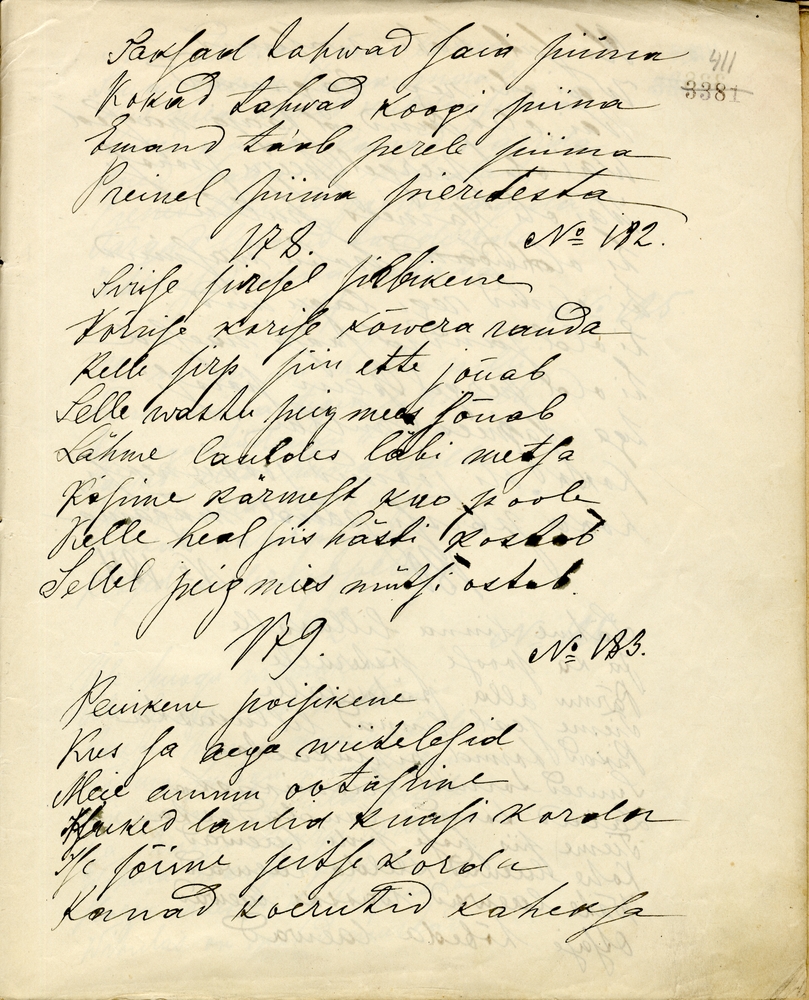 411
3381
Saksad tahwad saia piima
Kokad tahwad koogi piima
Emand tääb perele piima
Preinel piima pieretesta
178. № 182.
Sirise sirisel sirbikene
Kõrise karise kõwera rauda
Kelle sirp siin ette jõuab
Selle wastu peigmees sõuab
Lähme lauldes läbi metsa
Küsime kärmest kuo poole
Kelle heal siis hästi kostab
Sellel peigmees mütsi ostab.
179. № 183.
Peiukene poisikene
Kus sa aega wiitelesid
Meie ammu ootasime
Kuked laulid kuusi korda
Ise sõime seitse korda
Kanad koerutid kaheksa